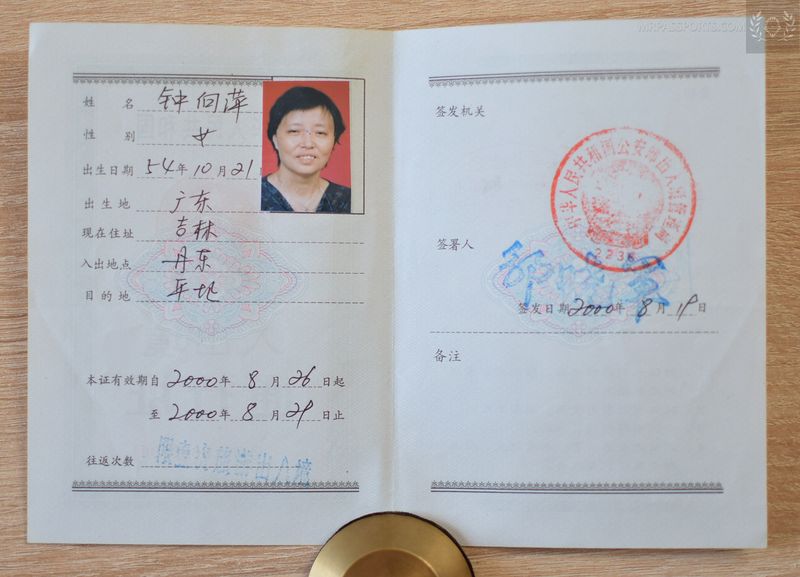 MRPASSPORTS.COM
姓 名 钟向萍
性 别 女
出生日期 54年10月21
出生地 广东
现在住址 吉林
入出地点 丹东
目的地 平北
本证有效期自2000年8月26日起
至2000年8月29日止
往返次数
签发机关
中华人民共和国公安部出入境管理局
2236
签署人
签发日期2000年8月19日
备注